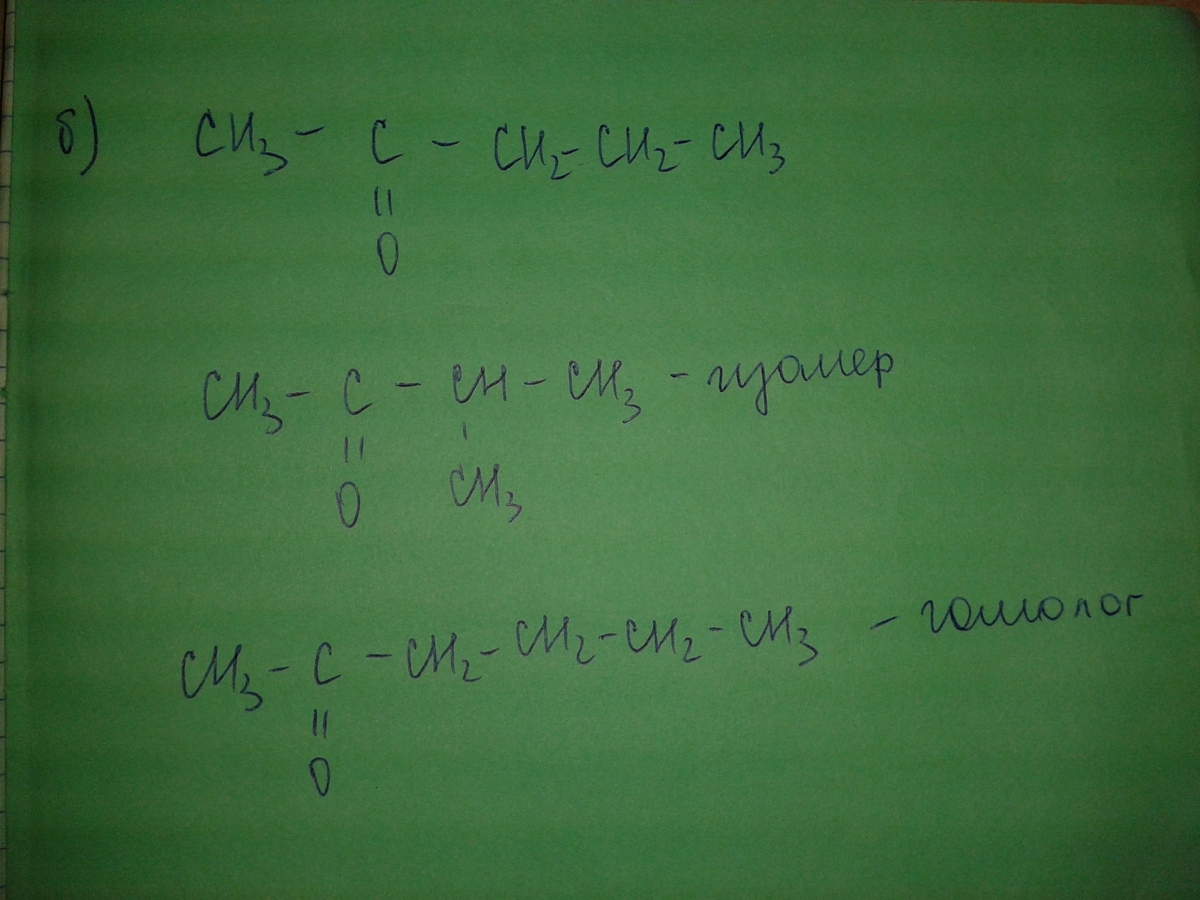 б) CH3 - C - CH2 - CH2 - CH3
||
O
CH3 - C - CH - CH3 - изомер
|| |
O CH3
CH3 - C - CH2 - CH2 - CH2 - CH3 - гомолог
||
O